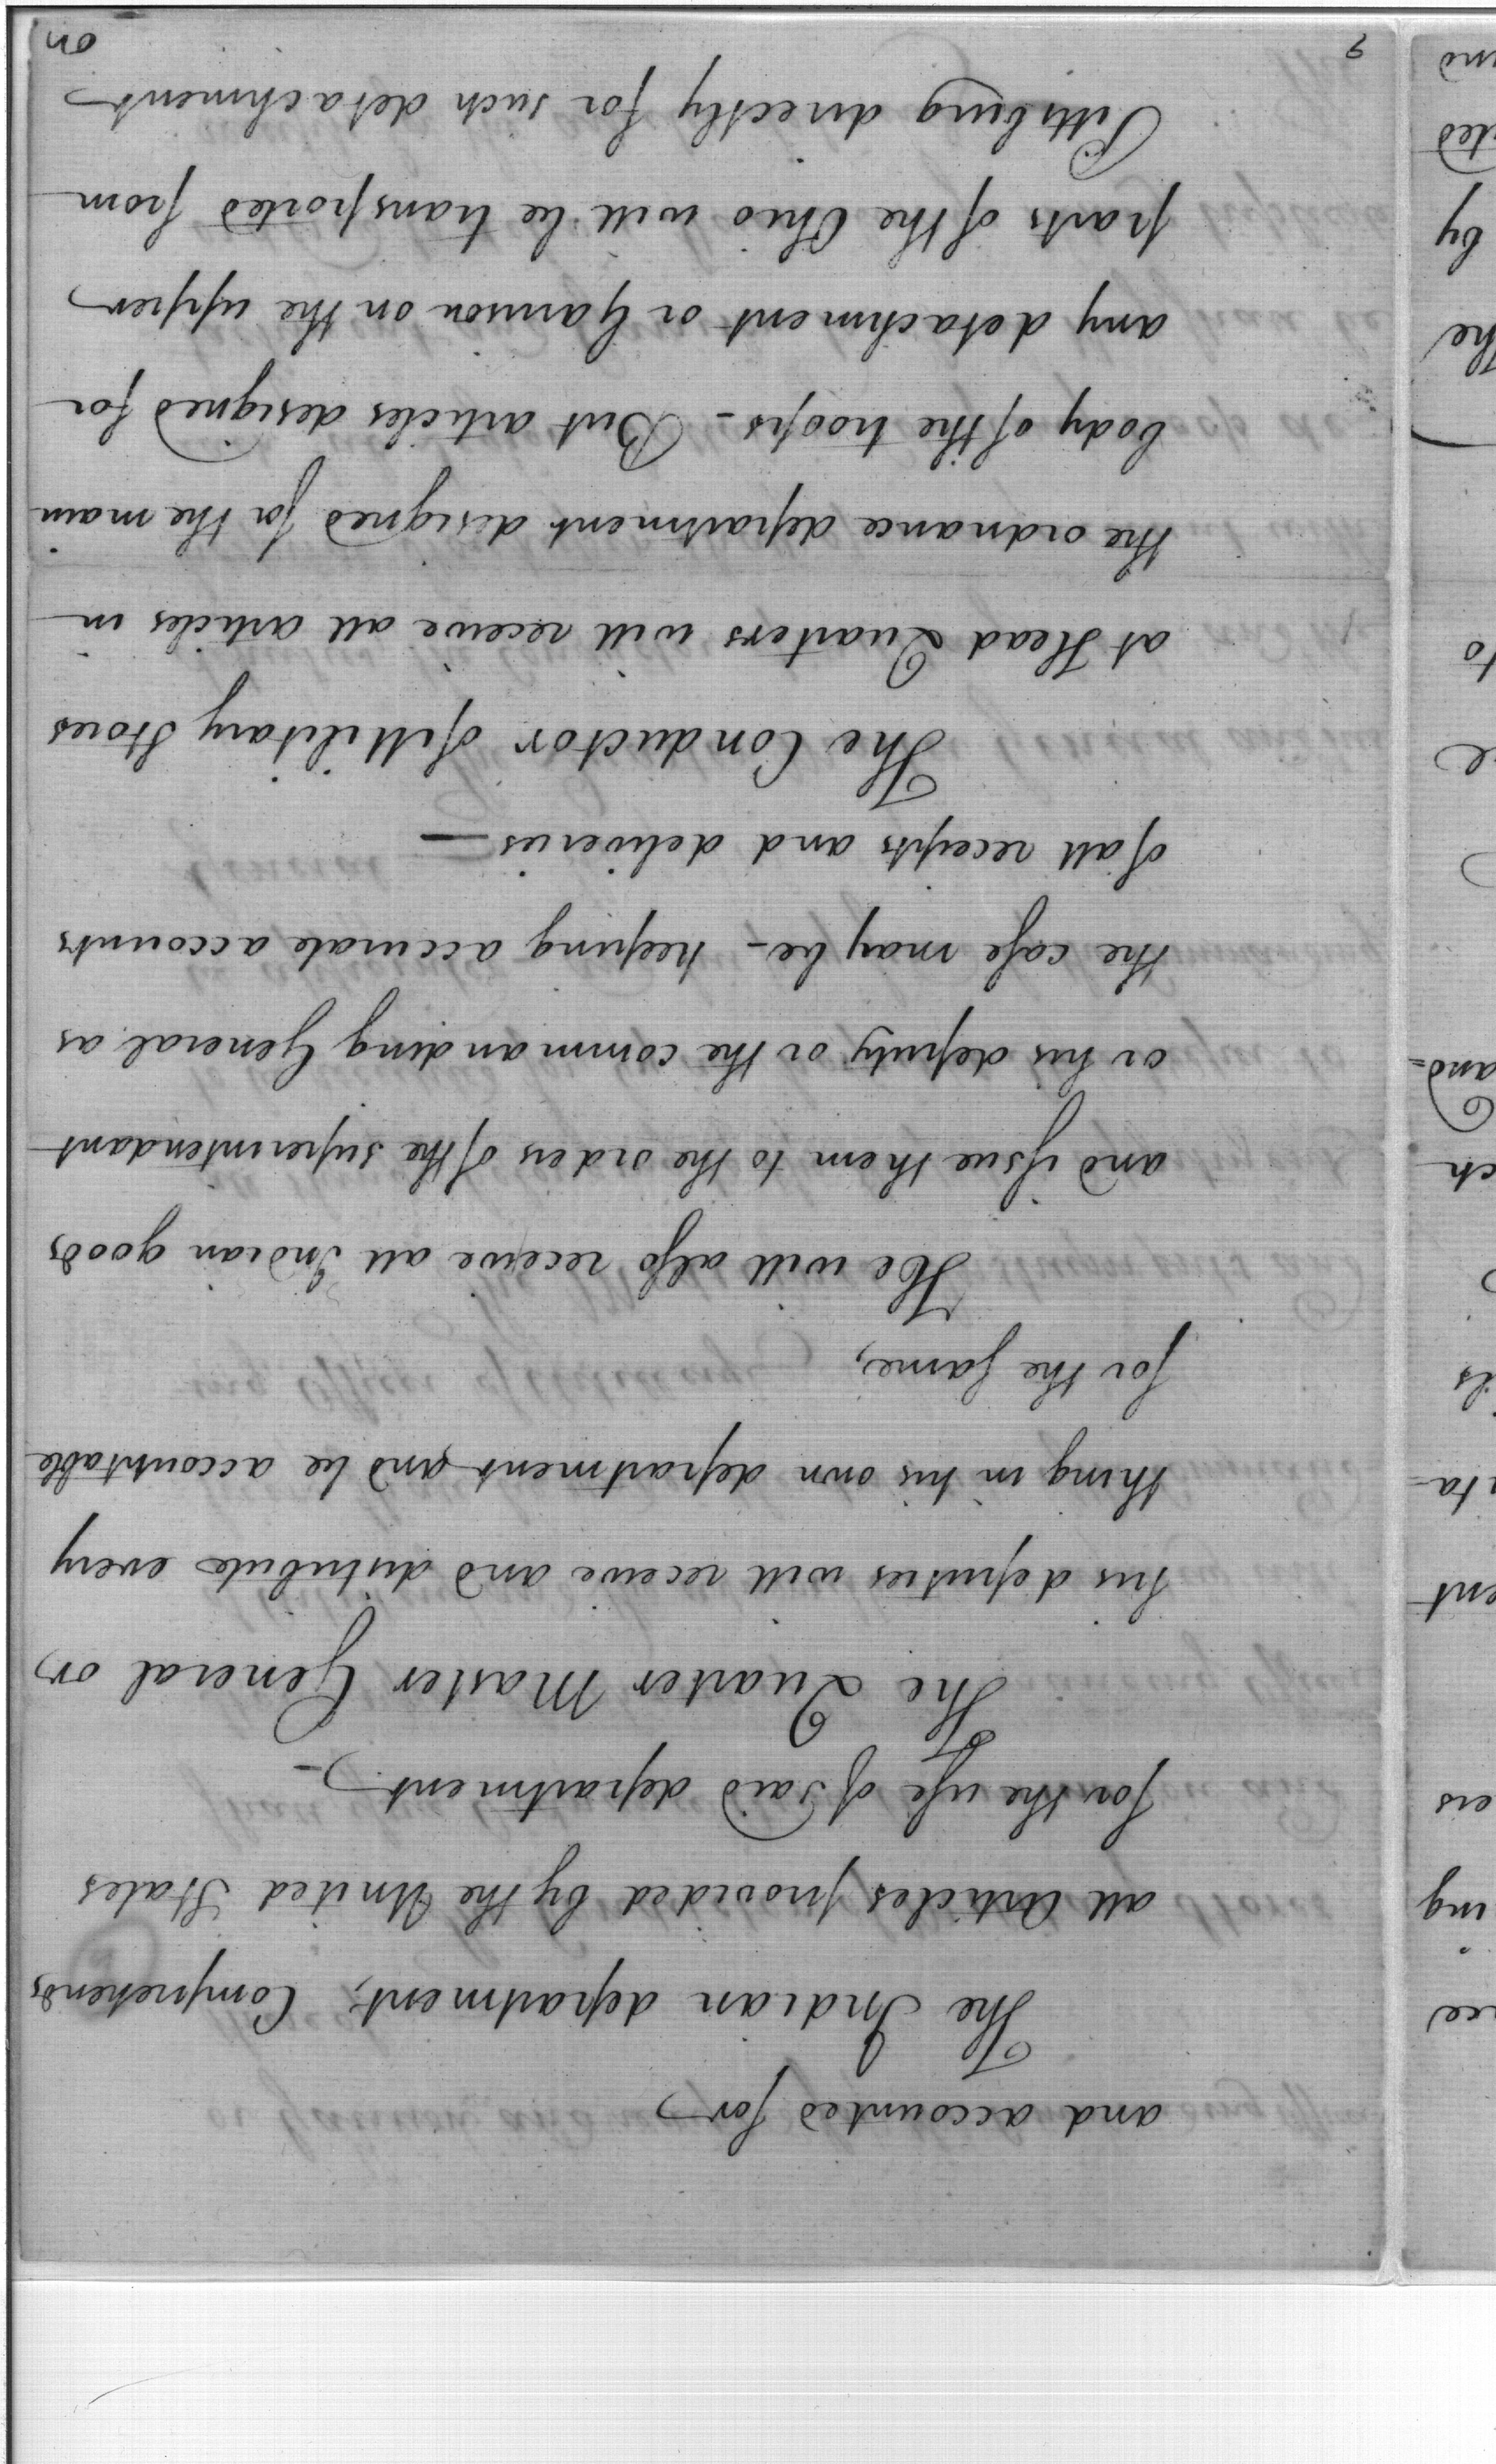 and accounted for
The Indian department, Comprehends
all articles provided by the United States
for the use of said department –
The Quarter Master General or
his deputies will receive and distribute every
thing in his own department and be accountable
for the same,
He will also receive all Indian goods
and issue them to the orders of the superintendant
or his deputy or the commanding General as
the case may be – keeping accurate accounts
of all receipts and deliveries —
The Conductor of Military Stores
at Head Quarters will receive all articles in
the ordnance department designed for the main
body of the troops – But articles designed for
any detachment or Garrison on the upper
parts of the Ohio will be transported from
Pittsburg directly for such detachment
on